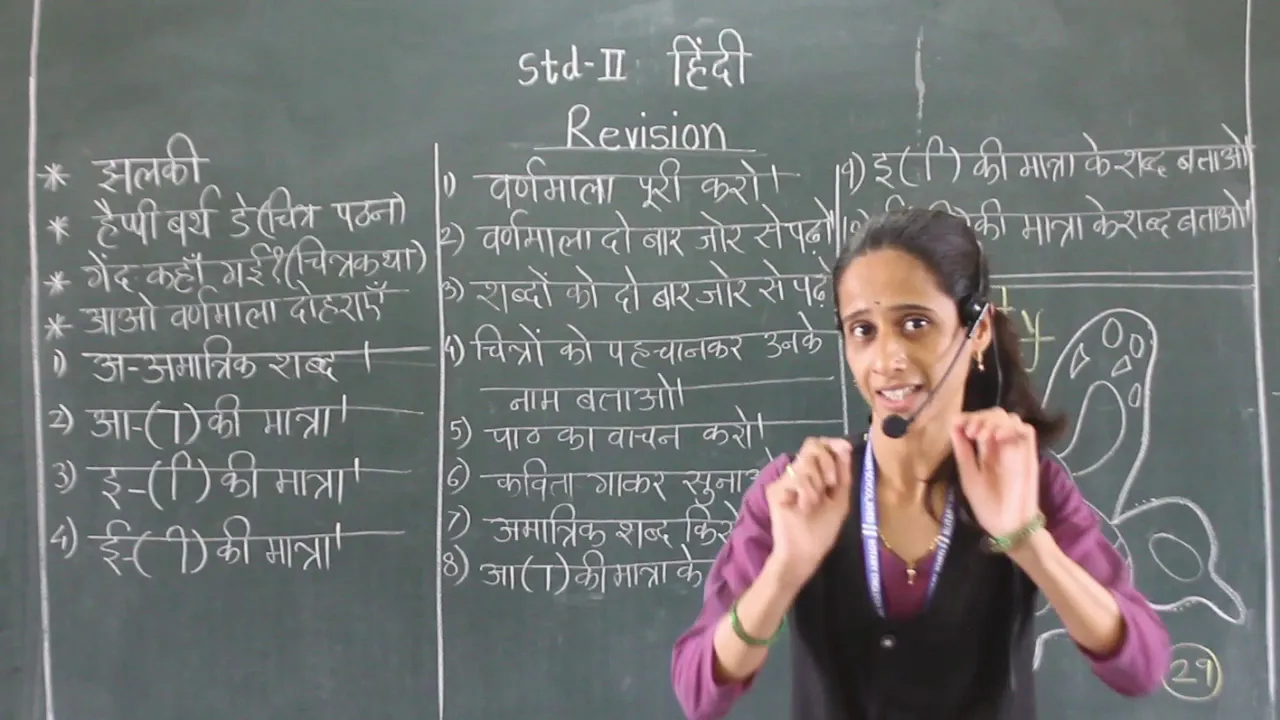 Std-II हिंदी
Revision
* झलकी
* हैप्पी बर्थ डे (चित्र पठन)
* गेंद कहाँ गई? (चित्रकथा)
* आओ वर्णमाला दोहराएँ
1) अ-अमात्रिक शब्द ।
2) आ-(ा) की मात्रा।
3) इ-(ि) की मात्रा।
4) ई-(ी) की मात्रा।
1) वर्णमाला पूरी करो।
2) वर्णमाला दो बार जोर से पढ़ो
3) शब्दों को दो बार जोर से पढ़ो
4) चित्रों को पहचानकर उनके
नाम बताओ।
5) पाठ का वाचन करो।
6) कविता गाकर
7) अमात्रिक शब्द
8) आ (ा) की मात्रा के
9) इ (ि) की मात्रा के शब्द बताओ।
की मात्रा के शब्द बताओ।
29